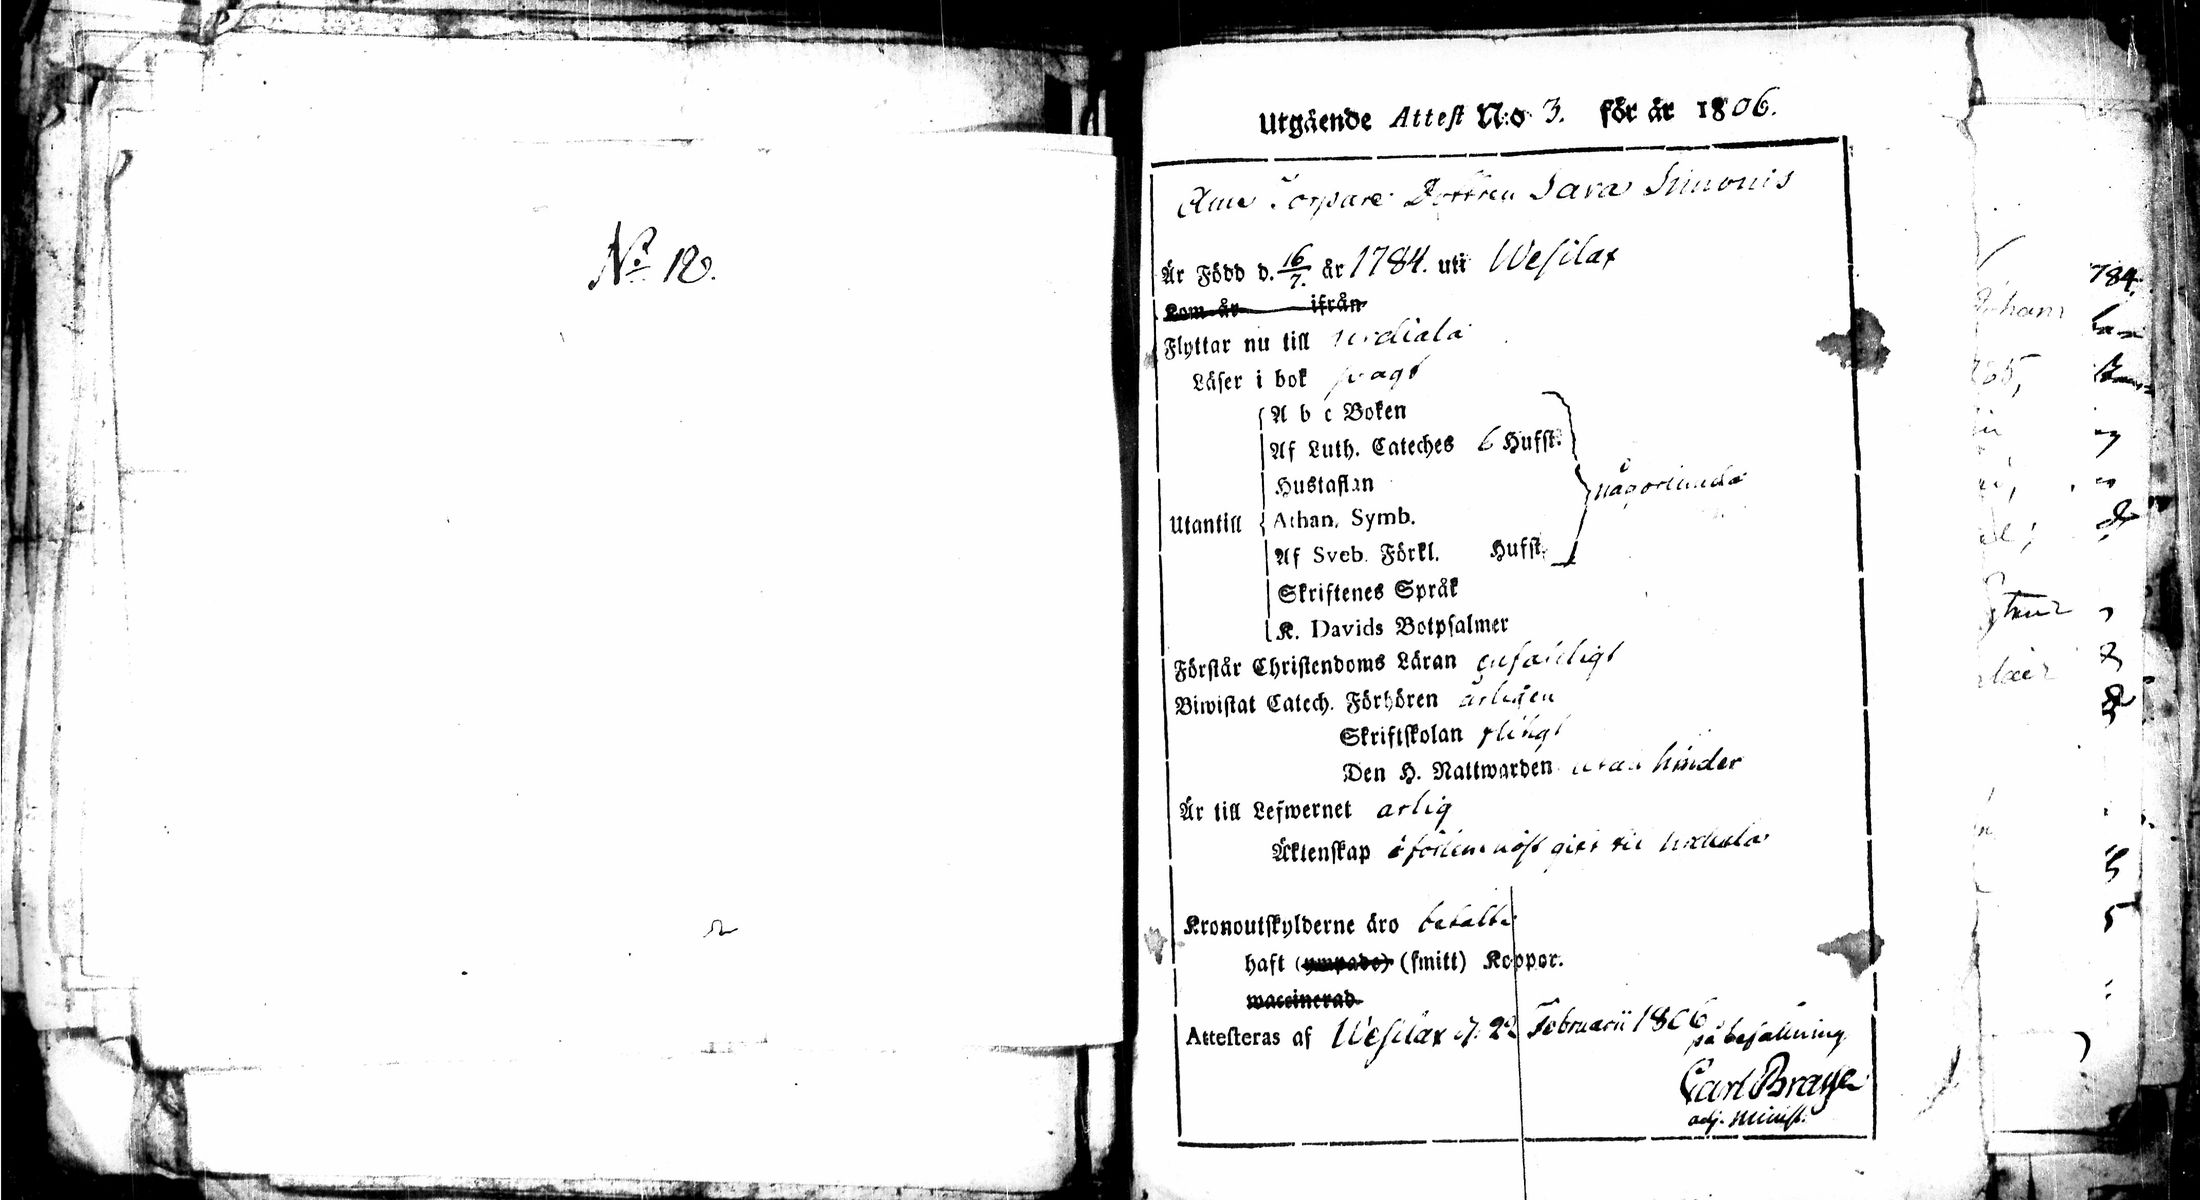 No 12.
Utgående Attest N:o 3. för år 1806.
Torpare Dottren Sara Simonis
Är Född d. 16/7. år 1784. uti Wesilax
Kom år ifrån
Flyttar nu till Urdiala
Läser i bok svagt
A b c Boken
Af Luth. Cateches 6 Hufst.
Hustaflan
någorlunda
Utantill
Athan. Symb.
Af Sveb. Förkl. Hufst.
Skriftenes Språk
K. Davids Botpsalmer
Förstår Christendoms Läran enfaldigt
Biwistat Catech. Förhören årligen
Skriftskolan flitigt
Den H. Nattwarden utan hinder
Är till Lefwernet ärlig
Äktenskap til Urdiala
Kronoutskylderne äro betalte
haft (ympade) (smitt) Koppor.
waccinerad.
Attesteras af Wesilax d. Februarii 1806
på befallning
Carl
adj. Minist.
784.